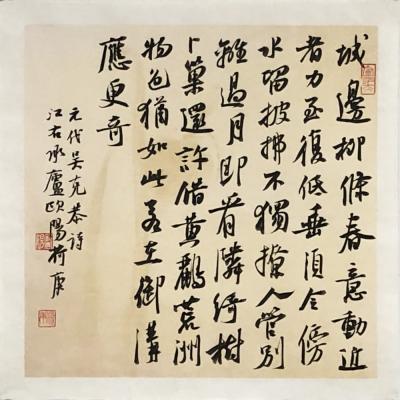 城邊柳條春意動近
者力至復低垂須令傍
水留披拂不獨撩人管別
離過月即看隣綺樹
卜巢還許借黄鸝荒洲
物色猶如此若在御溝
應更奇
元代吴克恭詩
江右承廬歐陽荷庚